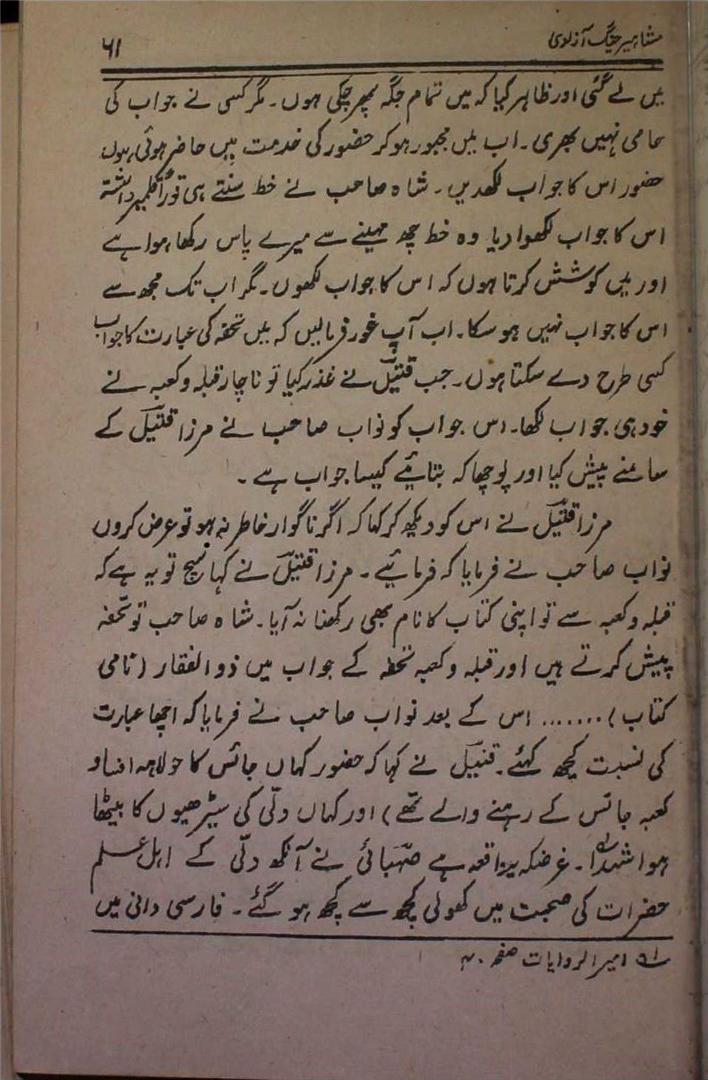 مشاہیر جنگ آزادی
۶۱
میں لے گئی اور ظاہر کیا کہ میں تمام جگہ پھر چکی ہوں۔ مگر کسی نے جواب کی
حامی نہیں بھری۔ اب میں مجبور ہو کر حضور کی خدمت میں حاضر ہوئی ہوں
حضور اس کا جواب لکھدیں۔ شاہ صاحب نے خط سنتے ہی فوراً قلم برداشتہ
اس کا جواب لکھوا دیا وہ خط چھ مہینے سے میرے پاس رکھا ہوا ہے
اور میں کوشش کرتا ہوں کہ اس کا جواب لکھوں۔ مگر اب تک مجھ سے
اس کا جواب نہیں ہو سکا۔ اب آپ غور فرمالیں کہ میں تحفہ کی عبارت کا جواب
کسی طرح دے سکتا ہوں۔ جب قتیلؔ نے عذر کیا تو ناچار قبلہ و کعبہ نے
خود ہی جواب لکھا۔ اس جواب کو نواب صاحب نے مرزا قتیلؔ کے
سامنے پیش کیا اور پوچھا کہ بتائیے کیسا جواب ہے۔
مرزا قتیلؔ نے اس کو دیکھ کر کہا کہ اگر ناگوار خاطر نہ ہو تو عرض کروں
نواب صاحب نے فرمایا کہ فرمائیے۔ مرزا قتیلؔ نے کہا سچ تو یہ ہے کہ
قبلہ و کعبہ سے تو اپنی کتاب کا نام بھی رکھنا نہ آیا۔ شاہ صاحب تو تحفہ
پیش کرتے ہیں اور قبلہ و کعبہ تحفہ کے جواب میں ذوالفقار (نامی
کتاب)....... اس کے بعد نواب صاحب نے فرمایا کہ اچھا عبارت
کی نسبت کچھ کہئے۔ قتیلؔ نے کہا کہ حضور کہاں جائس کا جولاہہ
کعبہ جائس کے رہنے والے تھے) اور کہاں دلّی کی سیڑھیوں کا بیٹھا
ہوا شہدا۔ غرضکہ یہ واقعہ ہے صہبائی نے آنکھ دلّی کے اہل علم
حضرات کی صحبت میں کھولی کچھ سے کچھ ہو گئے۔ فارسی دانی میں
لہ امیر الروایات صفحہ ۴۰